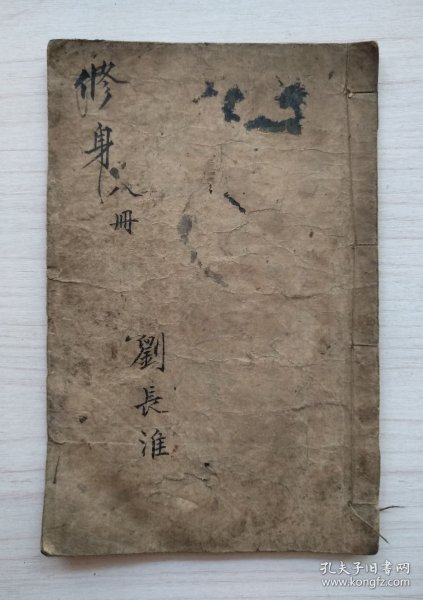 修身八冊
劉長淮
孔夫子旧書网
www.kongfz.com